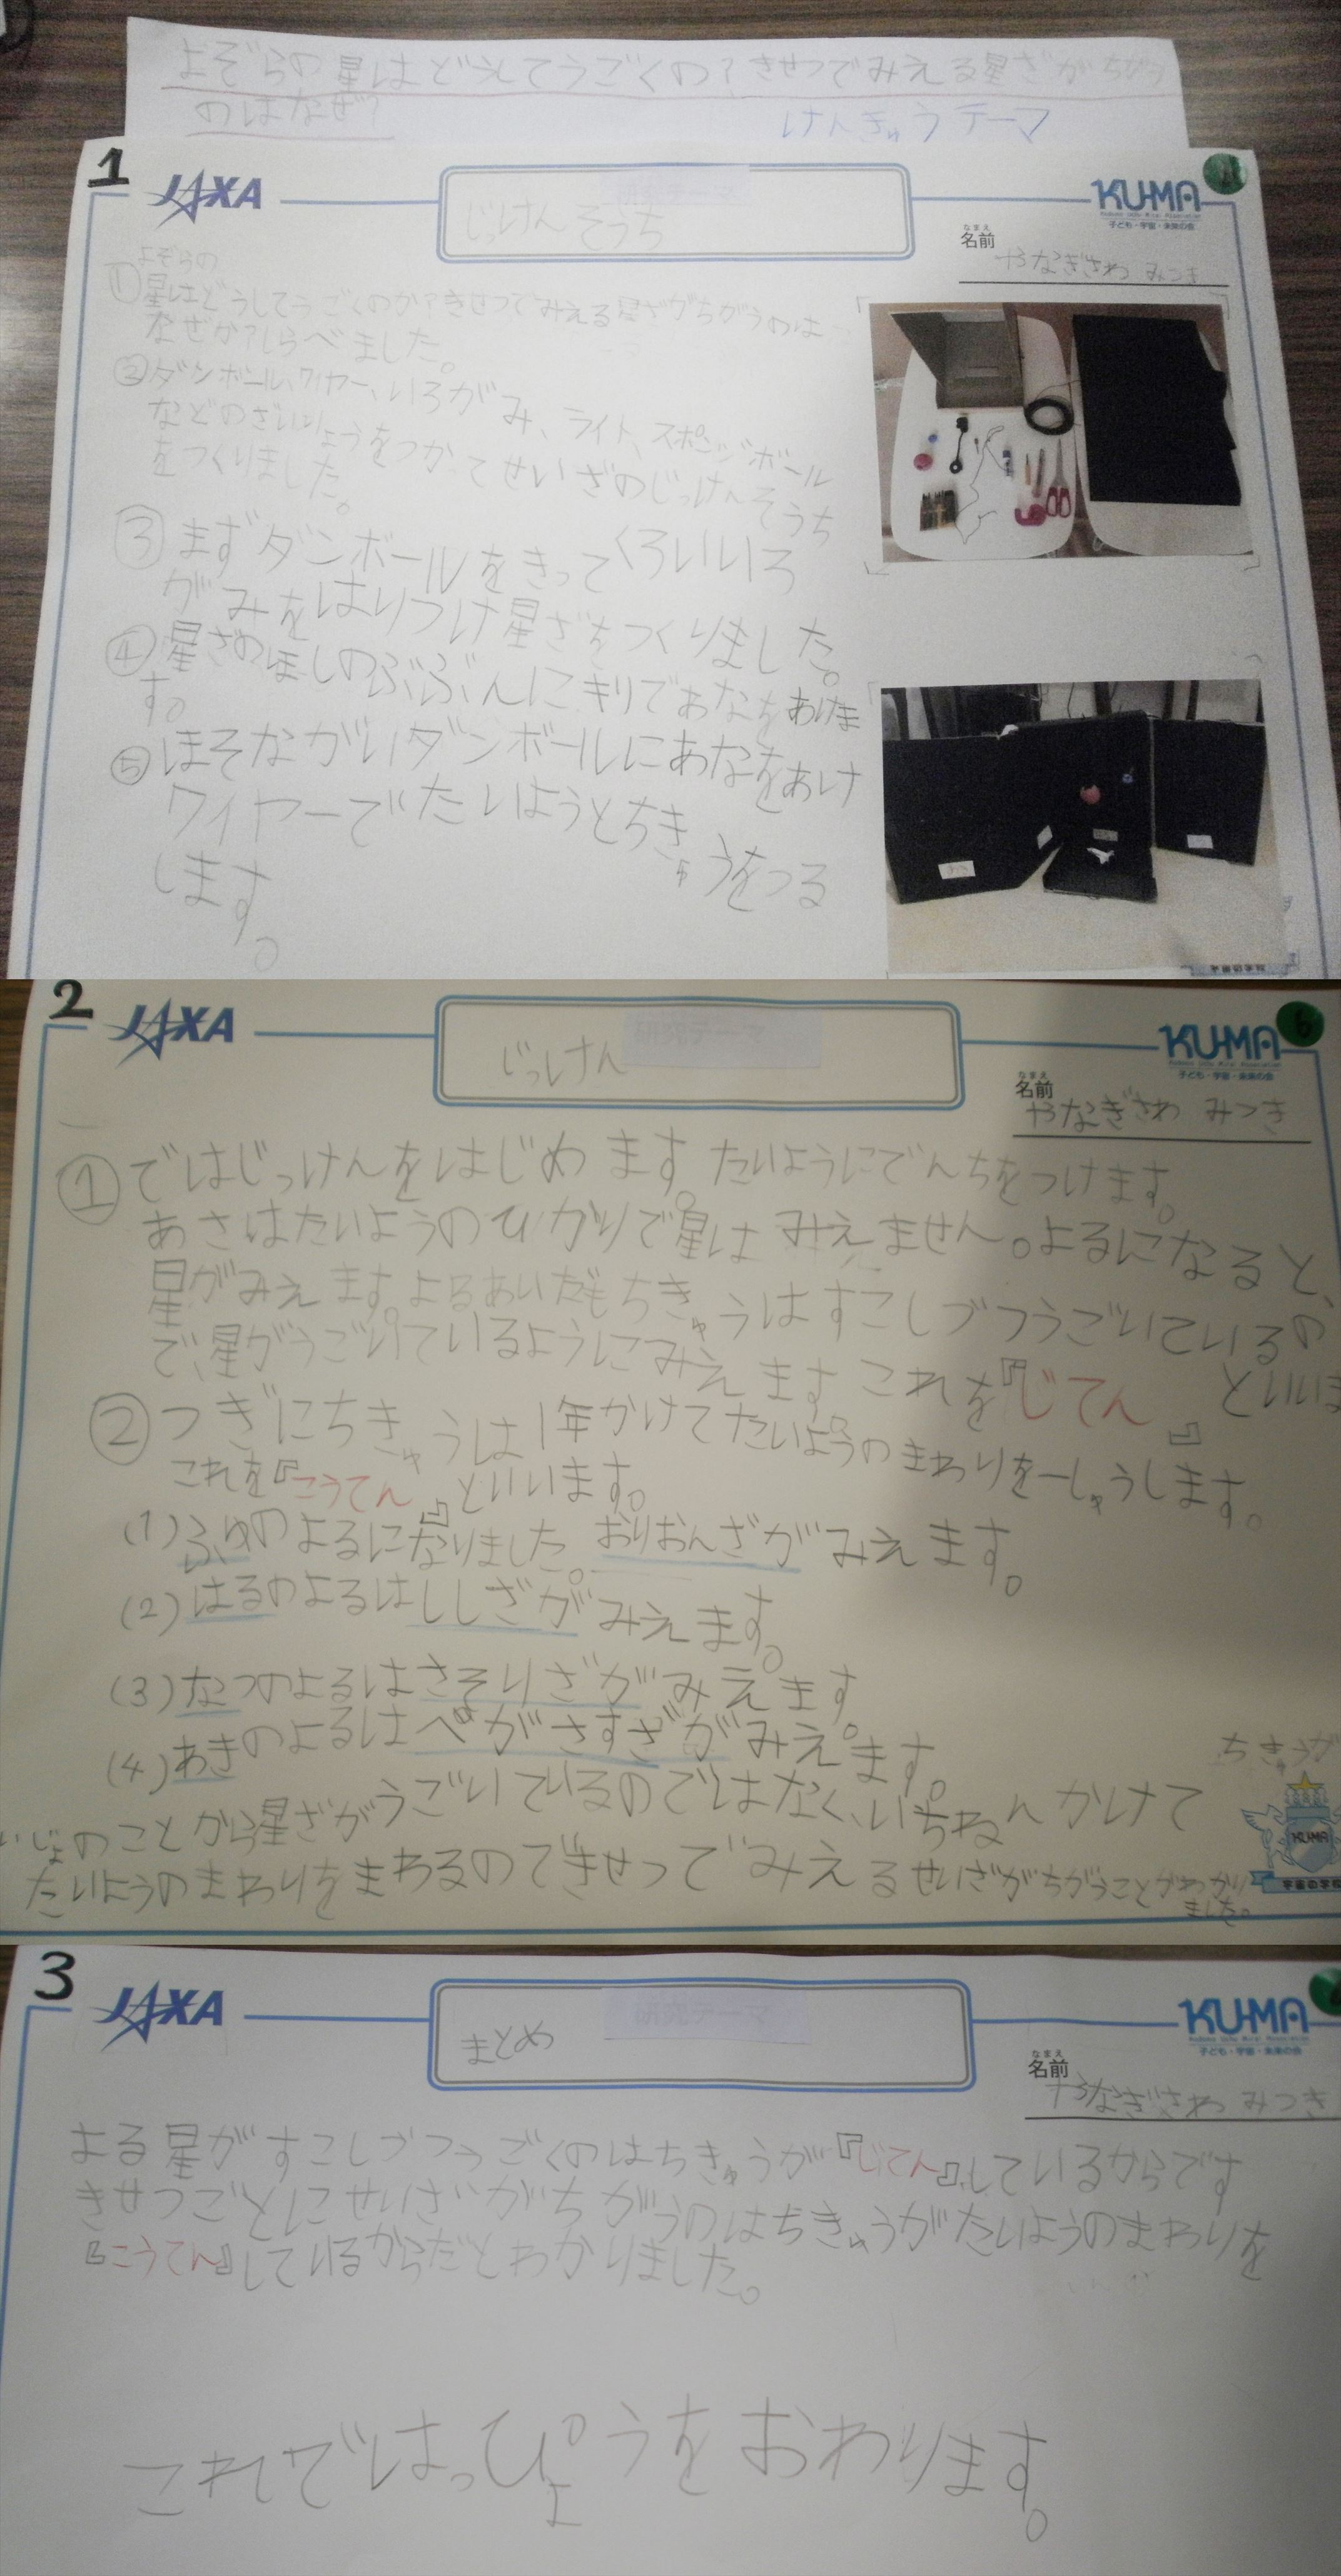 よぞらの星はどうしてうごくの?きせつでみえる星ざがちがう
のはなぜ?
けんきゅうテーマ
1
JAXA
じっけんそうち
KU-MA
子ども・宇宙・未来の会
なまえ
名前
やなぎさわ みつき
よぞらの
①星はどうしてうごくのか?きせつでみえる星ざがちがうのは
なぜか?しらべました。
②ダンボール、ワイヤー、いろがみ、ライト、スポンジボール
などのざいりょうをつかってせいざのじっけんそうち
をつくりました。
③まずダンボールをきってくろいいろ
がみをはりつけ星ざをつくりました。
④星ざのほしのぶぶんにきりであなをあけま
す。
⑤ほそながいダンボールにあなをあけ
ワイヤーでたいようとちきゅうをつる
します。
2
JAXA
じっけん
研究テーマ
KU-MA
子ども・宇宙・未来の会
6
なまえ
名前
やなぎさわ みつき
①ではじっけんをはじめます。たいようにでんちをつけます。
あさはたいようのひかりで星はみえません。よるになると、
星がみえます。よるあいだもちきゅうはすこしづつうごいているの
で、星がうごいているようにみえます。これを『じてん』といいま
②つぎにちきゅうは1年かけてたいようのまわりを一しゅうします。
これを『こうてん』といいます。
(1)ふゆのよるになりました。おりおんざがみえます。
(2)はるのよるはししざがみえます。
(3)なつのよるはさそりざがみえます。
(4)あきのよるはぺがさすざがみえます。
ちきゅうが
いじょのことから星ざがうごいているのではなく、いちねんかけて
たいようのまわりをまわるのできせつでみえるせいざがちがうことがわかり
ました。
KUMA
宇宙の学校
3
JAXA
まとめ
研究テーマ
KU-MA
子ども・宇宙・未来の会
なまえ
名前
やなぎさわ みつき
よる星がすこしづつうごくのはちきゅうが『じてん』しているからです
きせつごとにせいざがちがうのはちきゅうがたいようのまわりを
『こうてん』しているからだとわかりました。
これではっぴょうをおわります。